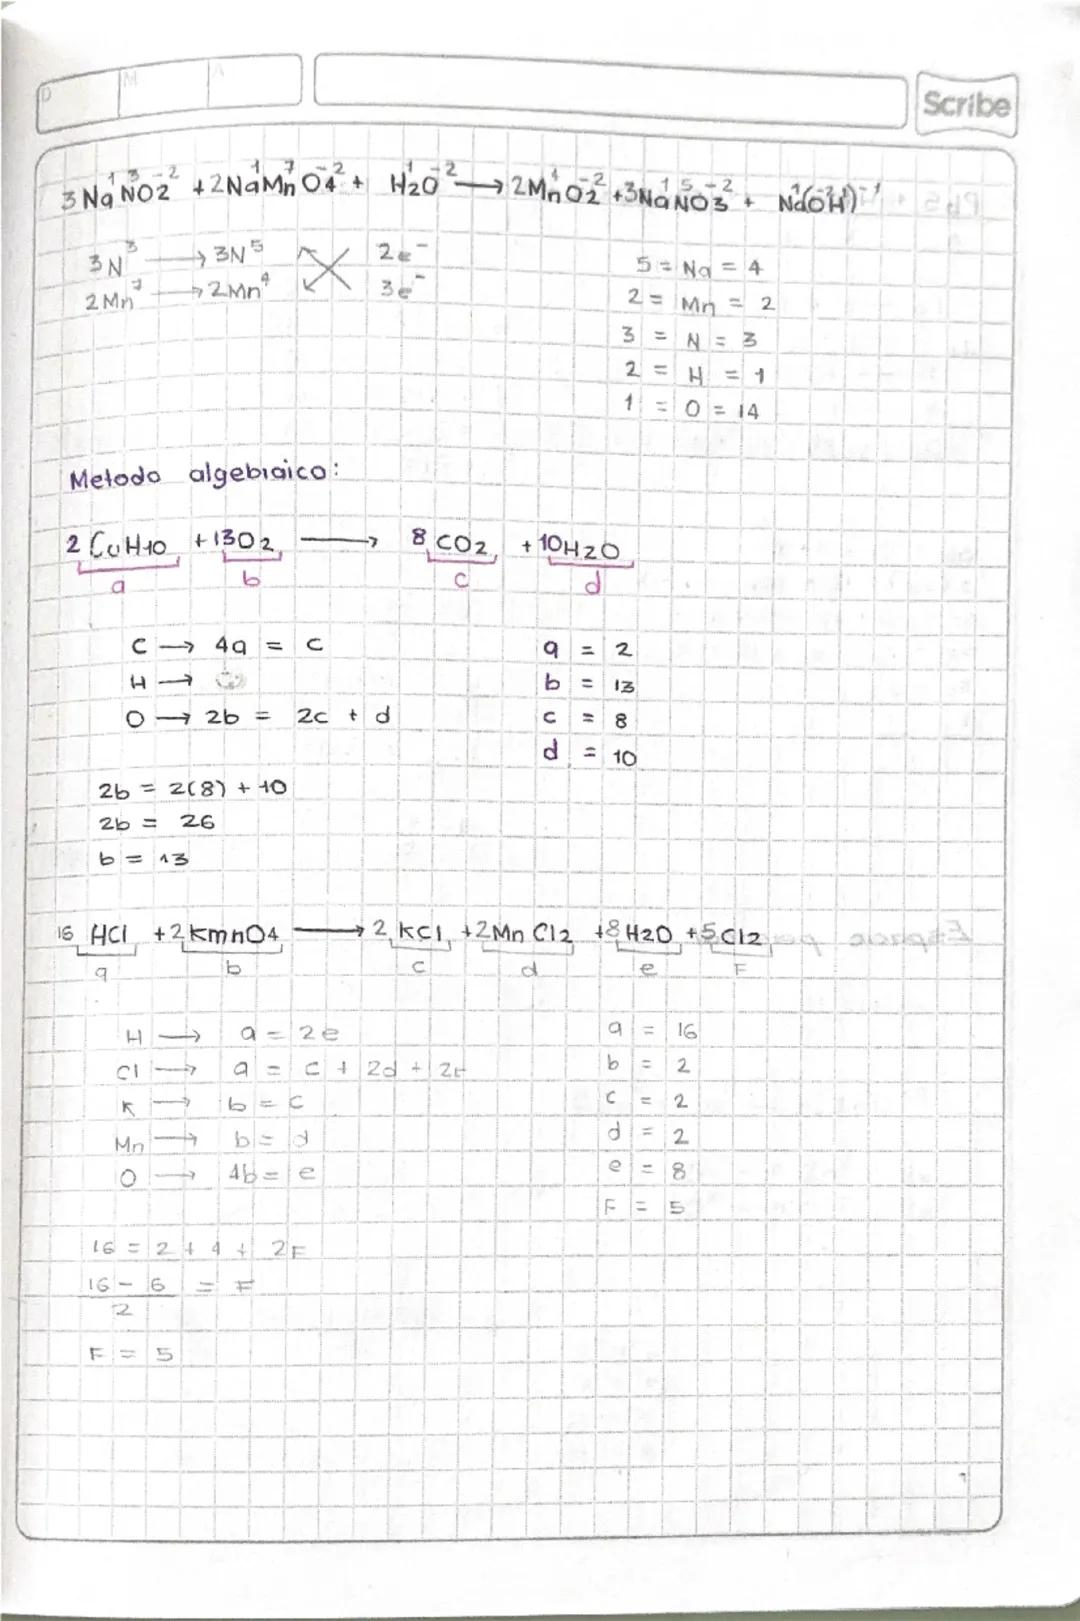 D M A
Scribe
3 Na¹N³O2⁻² + 2Na¹Mn⁷O4⁻² + H¹2O⁻² → 2Mn⁴O2⁻² + 3Na¹N⁵O3⁻² + Na¹(O⁻²H¹)⁻¹
3N³ → 3N⁵ 2e⁻
2Mn⁷ → 2Mn⁴ 3e⁻
5 = Na = 4
2 = Mn = 2
3 = N = 3
2 = H = 1
1 = O = 14
Metodo algebraico:
2 C4H10 + 13O2 → 8 CO2 + 10H2O
a b c d
C → 4a = c a = 2
H → b = 13
O → 2b = 2c + d c = 8
d = 10
2b = 2(8) + 10
2b = 26
b = 13
16 HCl + 2 KmnO4 → 2 KCl + 2Mn Cl2 + 8 H2O + 5Cl2
a b c d e F
H → a = 2e a = 16
Cl → a = c + 2d + 2F b = 2
K → b = c c = 2
Mn → b = d d = 2
O → 4b = e e = 8
F = 5
16 = 2 + 4 + 2F
16 - 6 = F
2
F = 5